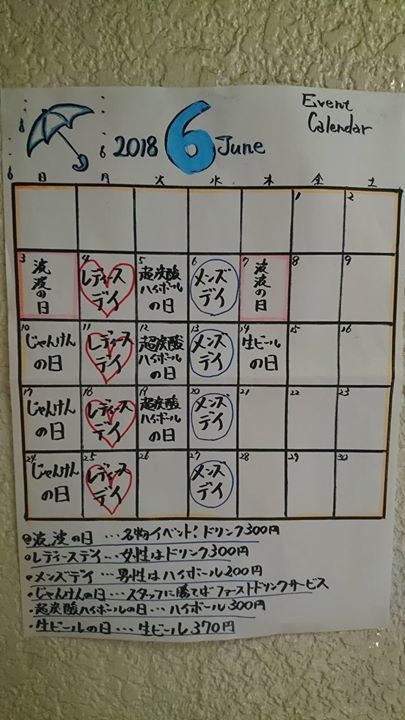 Event
Calendar
2018 6 June
日 月 火 水 木 金 土
1 2
3 4 5 6 7 8 9
波波の日 レディースデイ 超炭酸ハイボールの日 メンズデイ 波波の日
10 11 12 13 14 15 16
じゃんけんの日 レディースデイ 超炭酸ハイボールの日 メンズデイ 生ビールの日
17 18 19 20 21 22 23
じゃんけんの日 レディースデイ 超炭酸ハイボールの日 メンズデイ
24 25 26 27 28 29 30
じゃんけんの日 レディースデイ メンズデイ
波波の日…名物イベント!ドリンク300円
・レディースデイ…女性はドリンク300円
・メンズデイ…男性はハイボール200円
・じゃんけんの日…スタッフに勝てばファーストドリンクサービス
・超炭酸ハイボールの日…ハイボール300円
・生ビールの日…生ビール370円